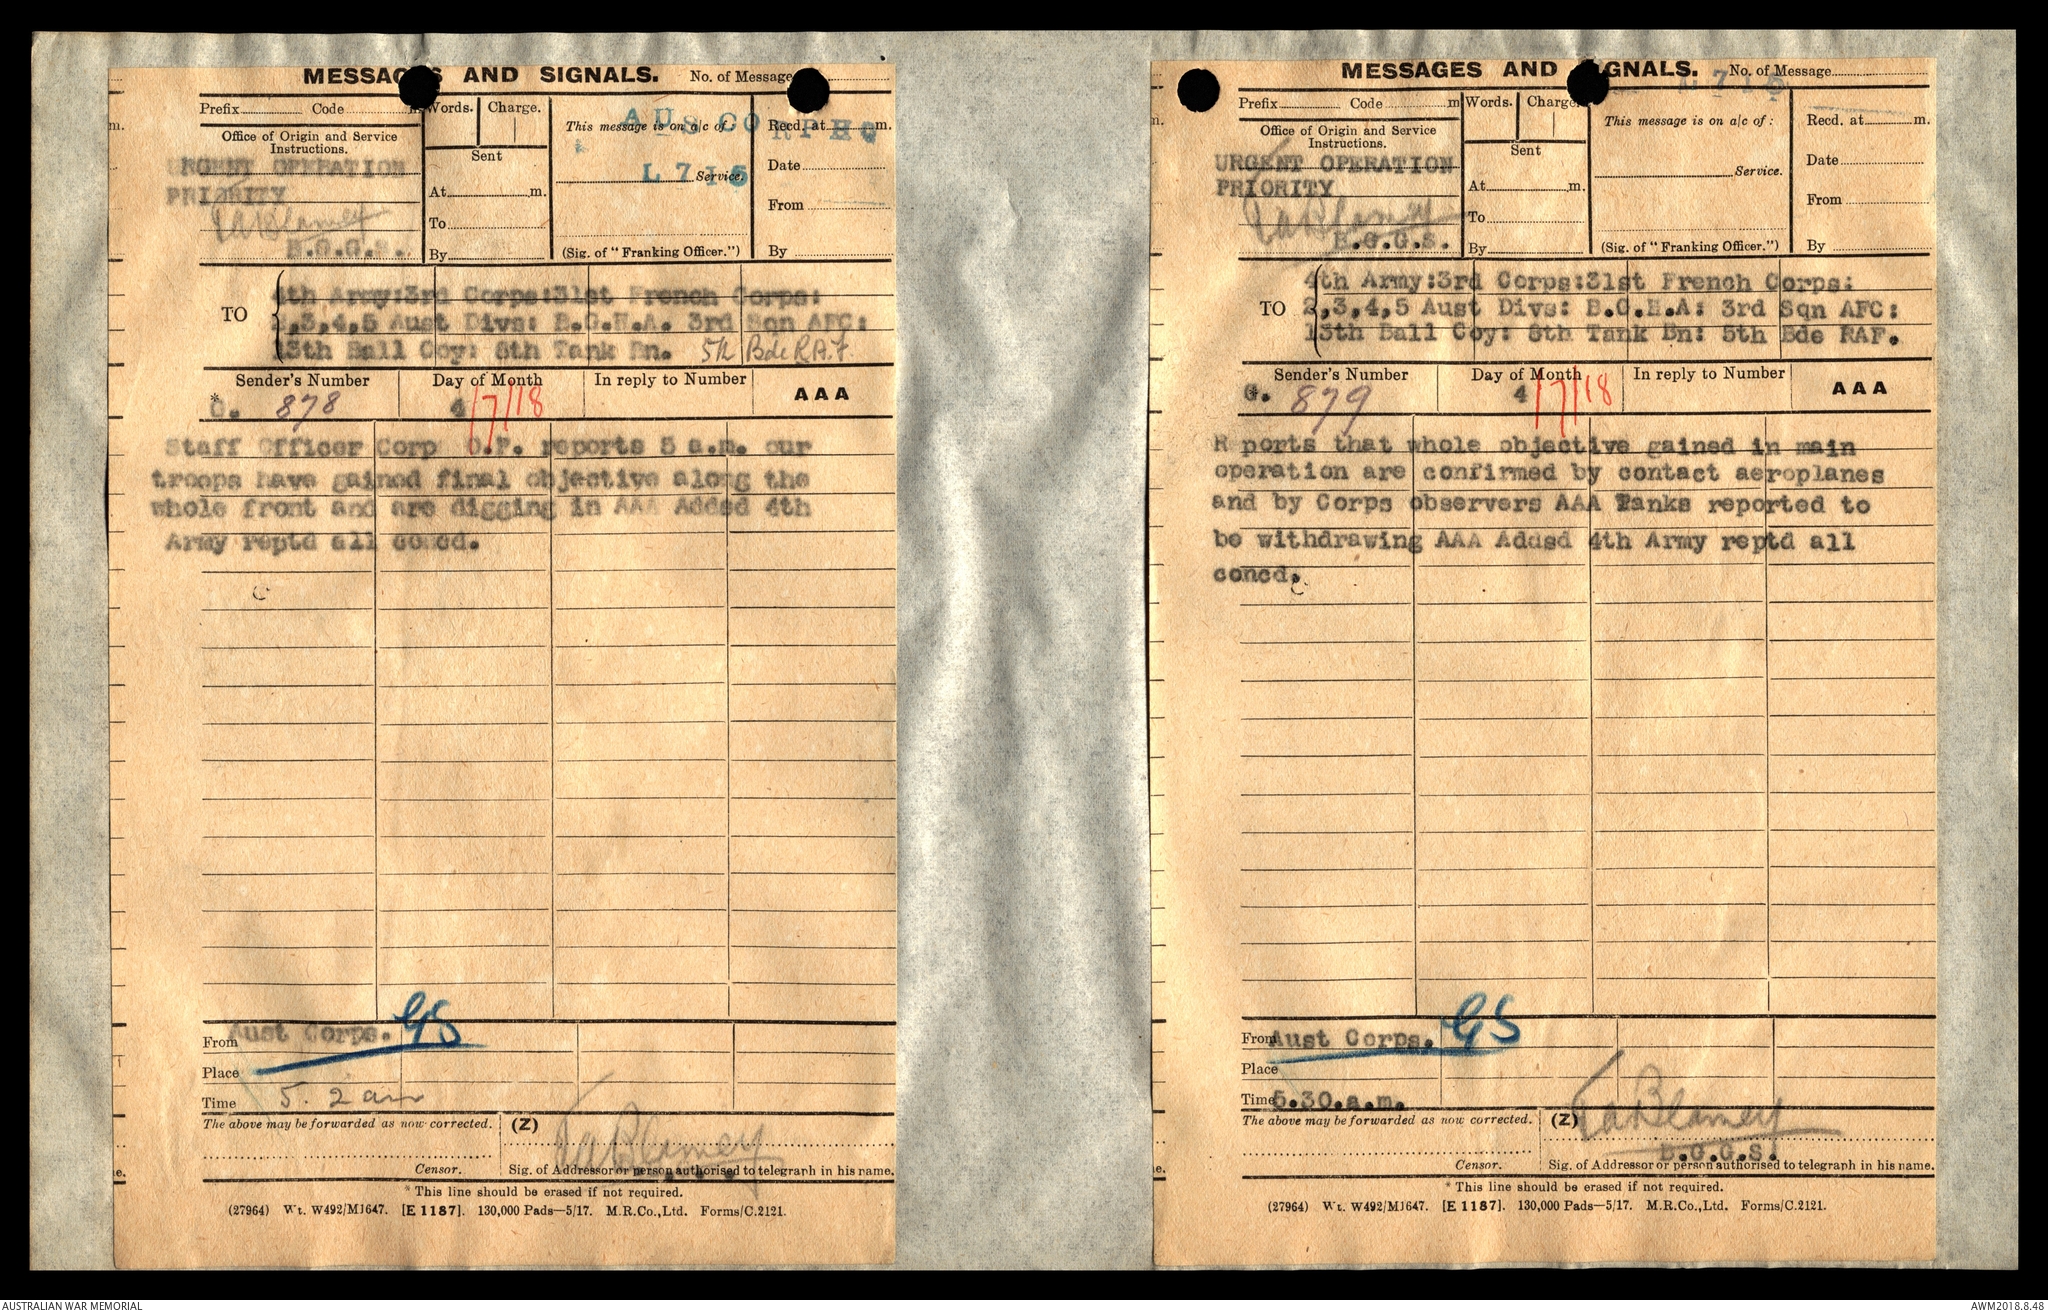 MESSAGES AND SIGNALS. No. of Message
Prefix Code m. Words. Charge.
This message is on a/c of:
AUS CORP HQ
Recd. at m.
Office of Origin and Service
Instructions.
Sent
URGENT OPERATION
PRIORITY
L 715 Service.
Date
At m.
From
TABlamey
To
B.G.G.S.
By
(Sig. of "Franking Officer.") By
TO
4th Army:3rd Corps:31st French Corps:
2,3,4,5 Aust Divs: B.G.H.A. 3rd Sqn AFC:
13th Ball Coy: 8th Tank Bn. 5th Bde R.A.F.
Sender's Number Day of Month In reply to Number AAA
* G. 878 4/7/18
Staff Officer Corp O.P. reports 5 a.m. our
troops have gained final objective along the
whole front and are digging in AAA Added 4th
Army reptd all concd.
From Aust Corps. GS
Place
Time 5. 2 am
The above may be forwarded as now corrected. (Z) TABlamey
Censor. Sig. of Addressor or person authorised to telegraph in his name.
* This line should be erased if not required.
(27964) Wt. W492/M1647. [E 1187]. 130,000 Pads—5/17. M.R.Co.,Ltd. Forms/C.2121.
MESSAGES AND SIGNALS. No. of Message
L 715
Prefix Code m Words. Charge.
This message is on a/c of:
Recd. at m.
Office of Origin and Service
Instructions.
Sent
URGENT OPERATION
PRIORITY
Service.
Date
At m.
From
TABlamey
To
B.G.G.S.
By
(Sig. of "Franking Officer.") By
TO
4th Army:3rd Corps:31st French Corps:
2,3,4,5 Aust Divs: B.G.H.A: 3rd Sqn AFC:
13th Ball Coy: 8th Tank Bn: 5th Bde RAF.
Sender's Number Day of Month In reply to Number AAA
G. 879 4/7/18
R ports that whole objective gained in main
operation are confirmed by contact aeroplanes
and by Corps observers AAA Tanks reported to
be withdrawing AAA Added 4th Army reptd all
concd.
From Aust Corps. GS
Place
Time 5.30.a.m.
The above may be forwarded as now corrected. (Z) TABlamey
B.G.G.S.
Censor. Sig. of Addressor or person authorised to telegraph in his name.
* This line should be erased if not required.
(27964) Wt. W492/M1647. [E 1187]. 130,000 Pads—5/17. M.R.Co.,Ltd. Forms/C.2121.
AUSTRALIAN WAR MEMORIAL
AWM2018.8.48